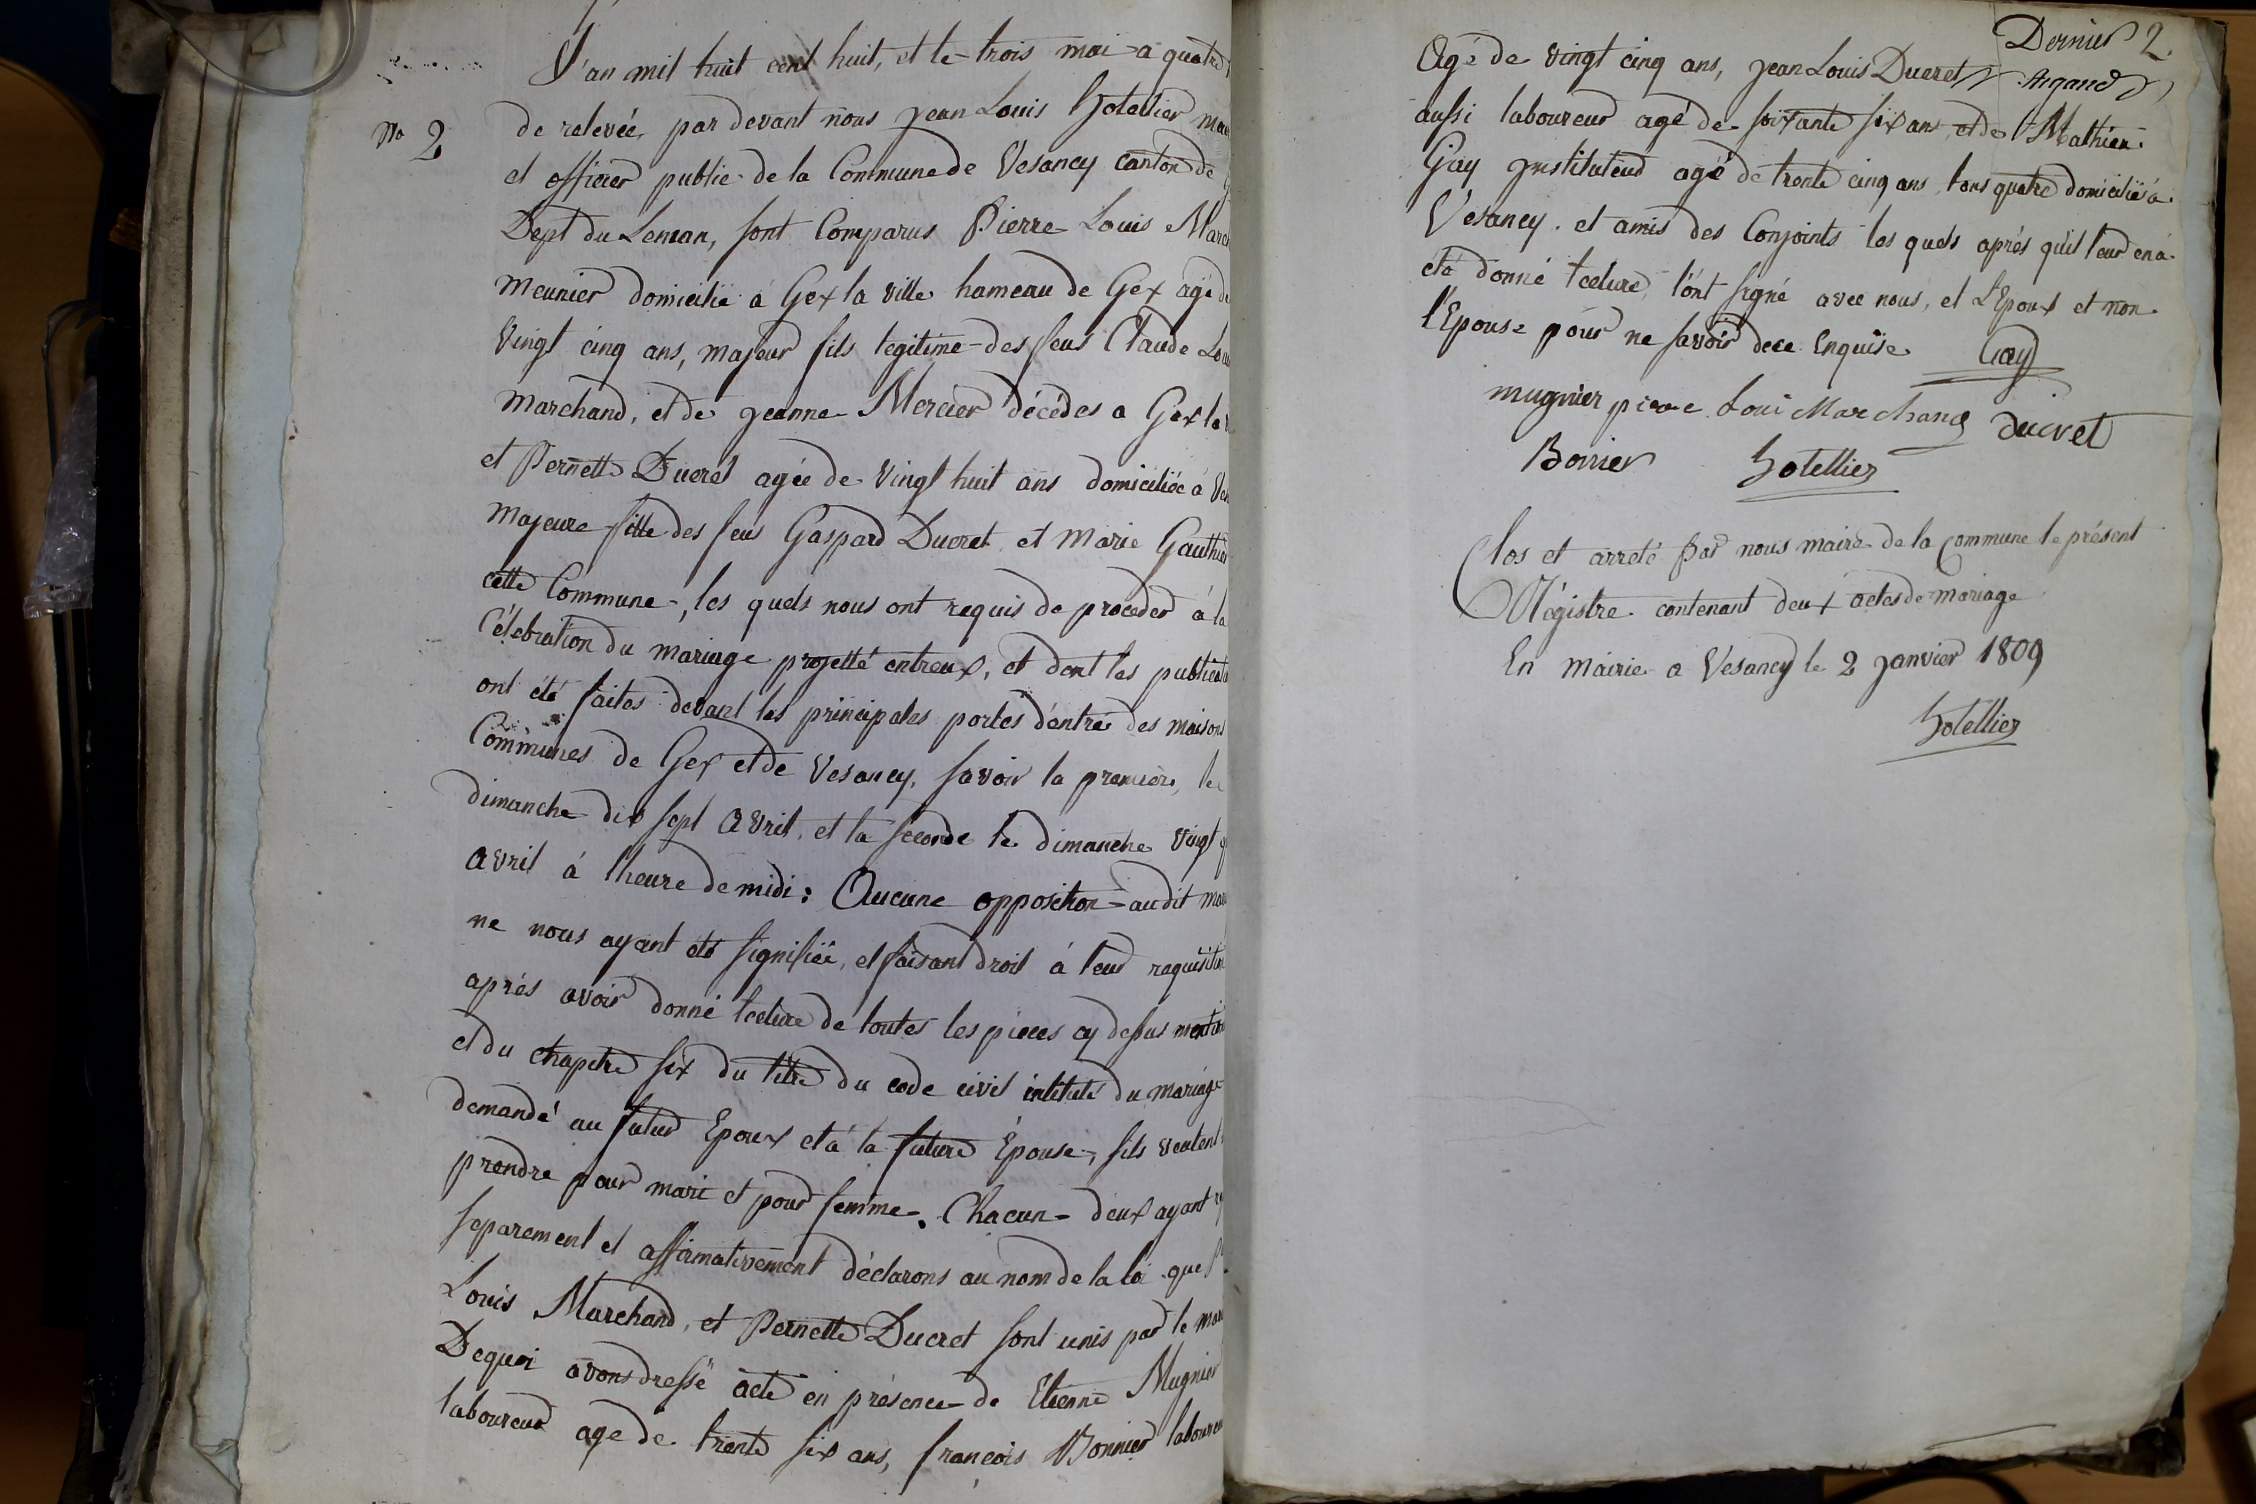 L'an mil huit cent huit, et le trois mai a quatre
No 2
de relevée, par devant nous Jean Louis hotellier
et officier public de la Commune de Vesancy canton de
Dept du Leman, sont Comparus Pierre Louis
meunier domicilié à Gex la ville hameau de Gex agé de
vingt cinq ans, majeur fils legitime des feus Claude
marchand, et de jeanne Mercier décédes a Gex la
et Pernette Ducret agée de vingt huit ans domiciliée à
majeure fille des feus Gaspard Ducret et Marie Gauthier
cette Commune, les quels nous ont requis de proceder à la
Célebration du mariage projetté entreux, et dont les
ont été faites devant les principales portes d'entrée des maisons
Communes de Gex et de Vesancy, savoir la premiere, le
dimanche dix sept avril, et la seconde le dimanche vingt
avril à lheure de midi : Aucune opposition audit
ne nous ayant été signifiée, et faisant droit à leur
après avoir donné lecture de toutes les pieces cy dessus
et du chapitre six du titre du code civil intitulé du mariage
demandé au futur Epoux et à la future Épouse, sils veulent
prendre pour mari et pour femme. Chacun deux ayant
separement et affirmativement déclarons au nom de la loi que
Louis Marchand, et Pernette Ducret sont unis par le
Dequoi avons dressé acte en présence de Etienne Mugnier
laboureur age de trente six ans, françois Bonnier
Dernier 2.
Argand
Agé de vingt cinq ans, jean Louis Ducret
aussi laboureur agé de soixante six ans et de Mathieu
Gay instituteur agé de trente cinq ans tous quatre domiciliés à
Vesancy. et amis des Conjoints les quels après qu'il leur en a
été donné lecture, l'ont signé avec nous, et L'Epoux et non
l'Epouse pour ne savoir de ce Enquise Gay
mugnier pierre Loui Marchand ducret
Bonier hotellier
Clos et arreté par nous maire de la Commune le présent
Régistre contenant deux actes de mariage
En Mairie a Vesancy le 2 janvier 1809
hotellier